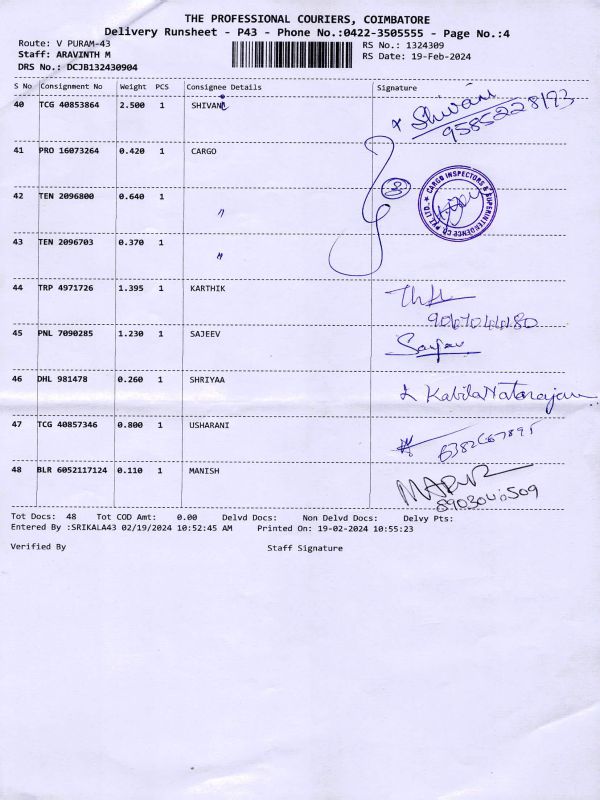 THE PROFESSIONAL COURIERS, COIMBATORE
Delivery Runsheet - P43 - Phone No.:0422-3505555 - Page No.:4
Route: V PURAM-43 RS No.: 1324309
Staff: ARAVINTH M RS Date: 19-Feb-2024
DRS No.: DCJB132430904
S No Consignment No Weight PCS Consignee Details Signature
40 TCG 40853864 2.500 1 SHIVANI Shivani
9585228193
41 PRO 16073264 0.420 1 CARGO
42 TEN 2096800 0.640 1 〃
CARGO INSPECTORS & SUPERINTENDENCE CO PVT. LTD.
43 TEN 2096703 0.370 1 〃
44 TRP 4971726 1.395 1 KARTHIK
45 PNL 7090285 1.230 1 SAJEEV
46 DHL 981478 0.260 1 SHRIYAA KabilaNatarajan
47 TCG 40857346 0.800 1 USHARANI
48 BLR 6052117124 0.110 1 MANISH
Tot Docs: 48 Tot COD Amt: 0.00 Delvd Docs: Non Delvd Docs: Delvy Pts:
Entered By :SRIKALA43 02/19/2024 10:52:45 AM Printed On: 19-02-2024 10:55:23
Verified By Staff Signature